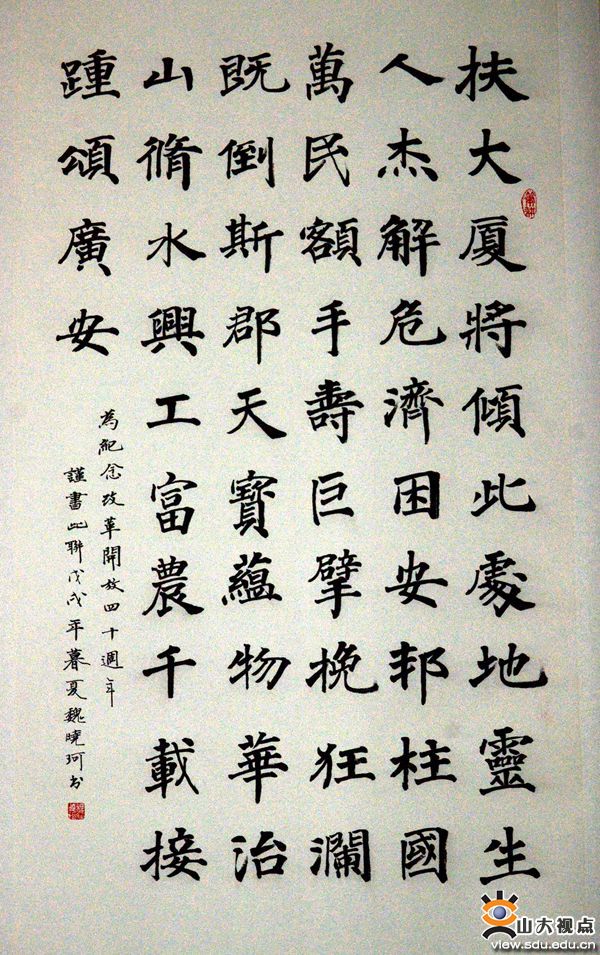 扶大厦將傾此處地靈生
人杰解危濟困安邦柱國
萬民額手壽巨擘挽狂瀾
既倒斯郡天寶蘊物華治
山脩水興工富農千載接
踵頌廣安
為紀念改革開放四十週年
謹書此聯戊戌年暮夏魏曉珂书
山大视点
view.sdu.edu.cn